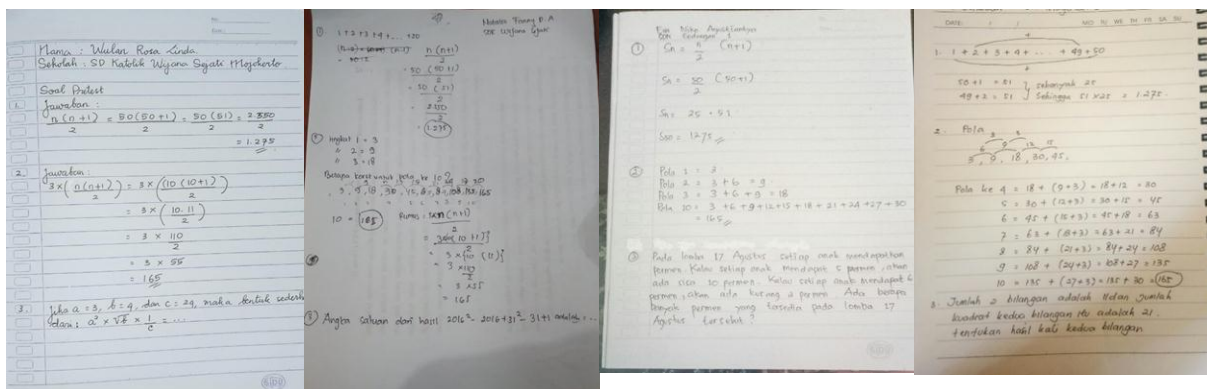 Nama : Wulan Rosa Linda.
Sekolah : SD Katolik Wijana Sejati Mojokerto
Soal Pretest
1. Jawaban :
n(n+1)/2 = 50(50+1)/2 = 50(51)/2 = 2.550/2
= 1.275
2. Jawaban :
3×(n(n+1)/2) = 3×(10(10+1)/2)
= 3×(10.11/2)
= 3 × 110/2
= 3 × 55
= 165
3. Jika a = 3, b = 4, dan c = 24, maka bentuk
dari : a² × √b × 1/c = ...
Natasia Fanny P.A
SDK Wijana Sejati
① 1+2+3+4+ ... +50
n(n+1)/2
= 50(50+1)/2
= 50(51)/2
= 2550/2
= 1.275
tingkat 1 = 3
" 2 = 9
" 3 = 18
Berapa korek untuk pola ke 10?
10 = 165 Rumus : 3×n(n+1)/2
= 3 × 55
= 165
③ Angka satuan dari hasil 2016² - 2016+31² - 31+1 adalah = ...
① Sn = n/2 (n+1)
Sn = 50/2 (50+1)
Sn = 25 . 51
S50 = 1275
② Pola 1 = 3
Pola 2 = 3+6 = 9
Pola 3 = 3+6+9 = 18
Pola 10 = 3+6+9+12+15+18+21+24+27+30
= 165
③ Pada lomba 17 Agustus setiap anak mendapatkan
permen. Kalau setiap anak mendapat 5 permen, akan
ada sisa 10 permen. Kalau setiap anak mendapat 6
permen, akan ada kurang 2 permen. Ada berapa
banyak permen yang tersedia pada lomba 17
Agustus tersebut?
DATE: / / MO TU WE TH FR SA SU
1. 1+2+3+4+ ... + 49+50
50+1 = 51 sebanyak 25
49+2 = 51 Sehingga 51 ×25 = 1.275
2. Pola
3 3
6 9 12 15
3, 9, 18, 30, 45,
Pola ke 4 = 18 + (9+3) = 18+12 = 30
5 = 30 + (12+3) = 30 + 15 = 45
6 = 45 + (15+3) = 45 + 18 = 63
7 = 63 + (18+3) = 63 + 21 = 84
8 = 84 + (21+3) = 84 + 24 = 108
9 = 108 + (24+3) = 108 + 27 = 135
10 = 135 + (27+3) = 135 + 30 = 165
3. Jumlah 2 bilangan adalah dan jumlah
kuadrat kedua bilangan itu adalah 21.
tentukan hasil kali kedua bilangan